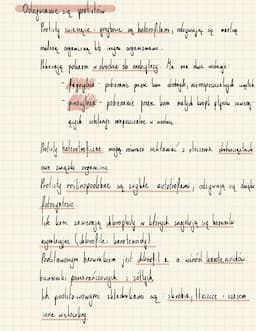 Odżywianie się protistów
Protisty zwierzęce i grzybowe są heterotrofami, odżywiają się martwą
materią organiczną lub innymi organizmami.
Pobierają pokarm w drodze do endocytozy. Ma ona dwa rodzaje:
- fagocytoza - pobieranie przez kom. drobnych, nierozpuszczalnych cząstek
- pinocytoza - pobieranie przez kom. małych kropli płynów zawiera-
jących substancje rozpuszczalne w wodzie.
Protisty heterotroficzne mogą również wchłaniać z otoczenia drobnocząstecz-
kowe związki organiczne.
Protisty roślinopodobne są zwykle autotrofami, odżywiają się dzięki
fotosyntezie.
Ich kom. zawierają chloroplasty w których znajdują się barwniki
asymilacyjne (chlorofile i karotenoidy)
Podstawowym barwnikiem jest chlorofil a, a wśród karotenoidów
barwniki pomarańczowych i żółtych.
Ich podstawowymi składnikami są: skrobia, tłuszcze i czasem
inne węglowodany